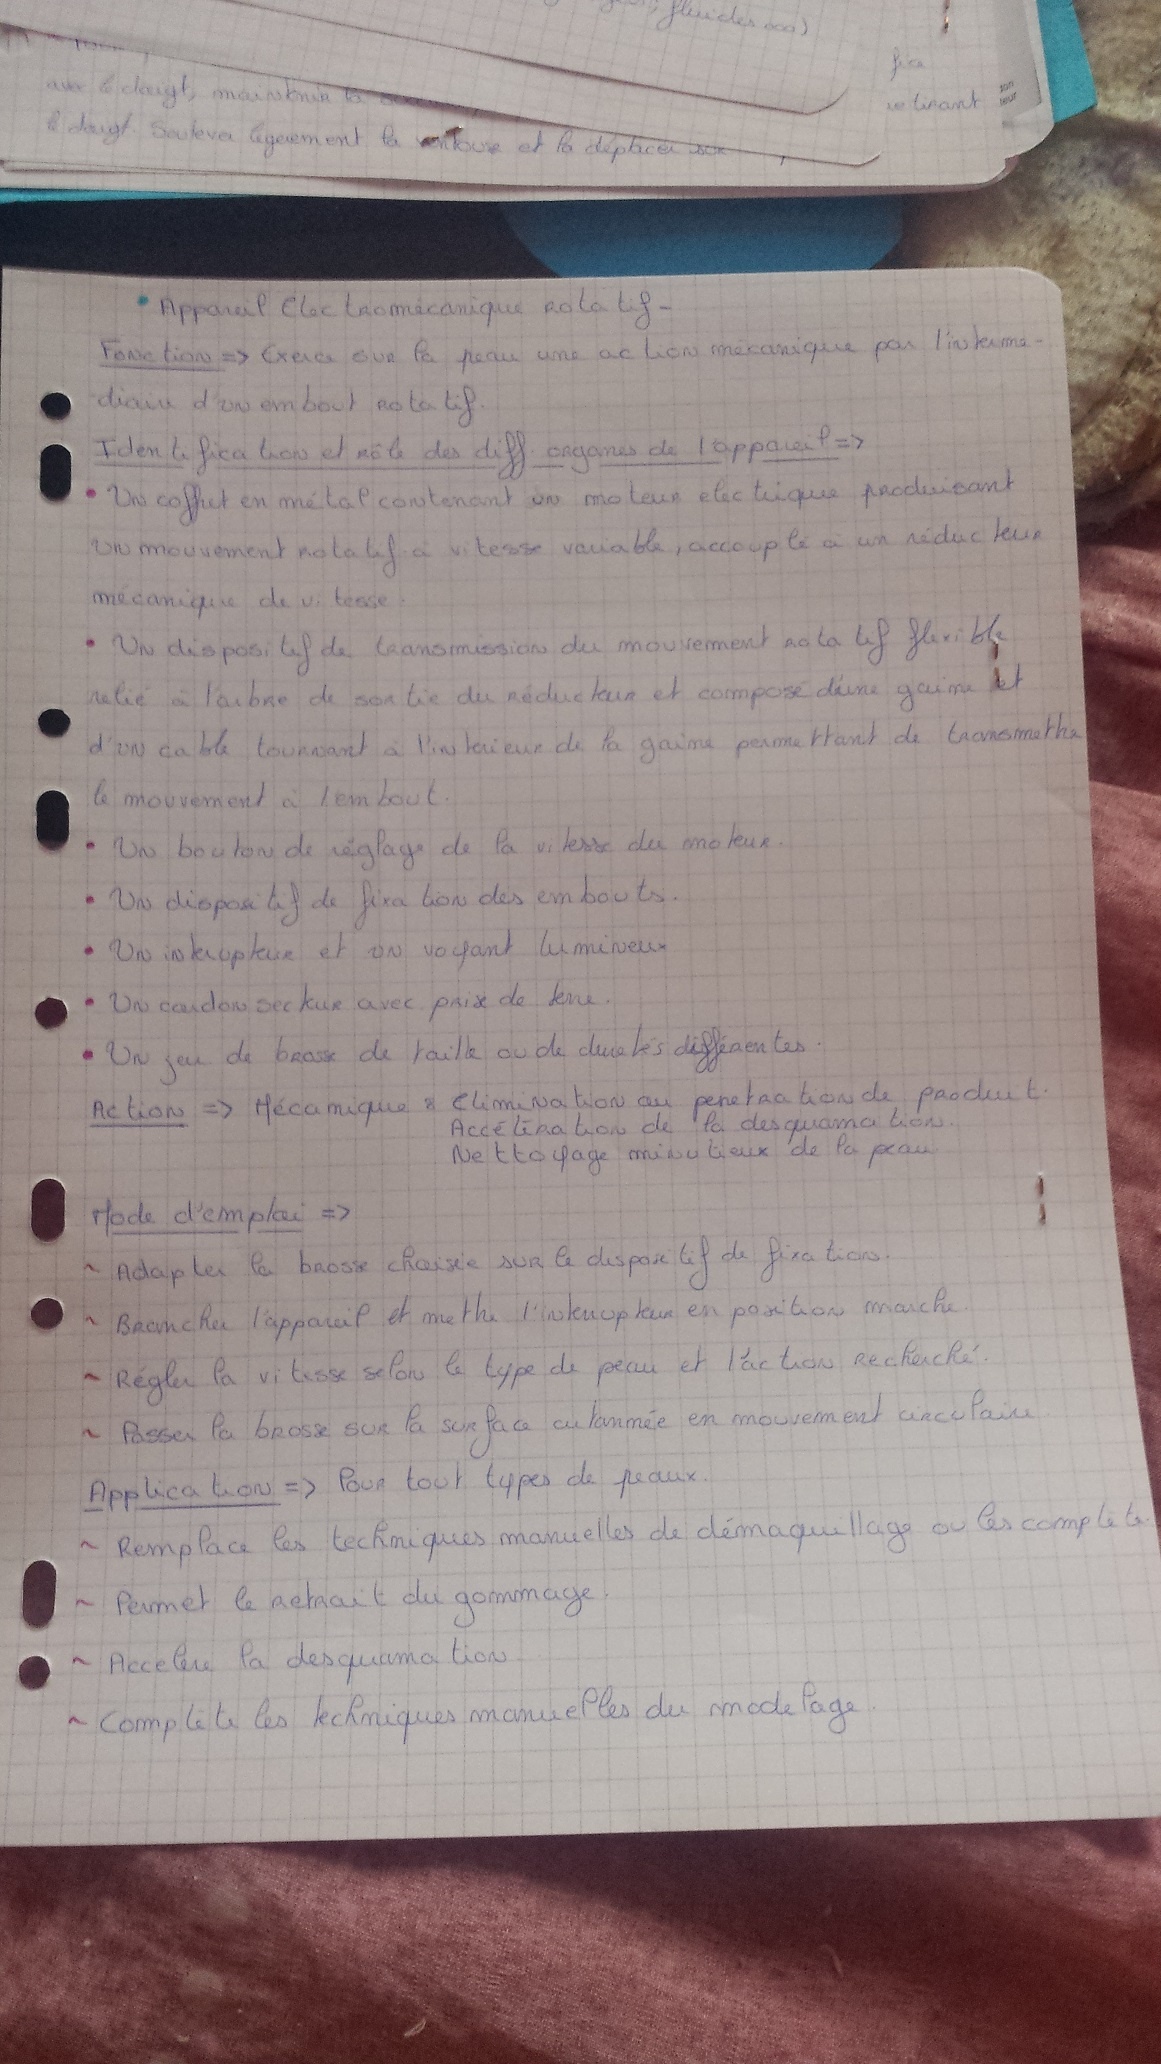 fluides ooo)
fic
avec le doigt, maintenir la
retirant
le doigt. Soulever légèrement la ventouse et la déplacer sur
• Appareil Electromécanique rotatif -
Fonction => Exerce sur la peau une action mécanique par l'interme-
diaire d'un embout rotatif.
Identification et rôle des diff organes de l'appareil =>
• Un coffret en métal contenant un moteur electrique produisant
un mouvement rotatif à vitesse variable, accouplé à un réducteur
mécanique de vitesse.
• Un dispositif de transmission du mouvement rotatif flexible
relié à l'arbre de sortie du réducteur et composé d'une gaine et
d'un cable tournant à l'interieur de la gaine permettant de transmettre
le mouvement à l'embout.
• Un bouton de réglage de la vitesse du moteur.
• Un dispositif de fixation des embouts.
• Un interupteur et un voyant lumineux
• Un cordon secteur avec prise de terre.
• Un jeu de brosse de taille ou de duretés différentes.
Action => Mécanique : Elimination ou penetration de produit.
Accélération de la desquamation.
Nettoyage minutieux de la peau
Mode d'emploi =>
~ Adapter la brosse choisie sur le dispositif de fixation.
~ Brancher l'appareil et mettre l'interupteur en position marche.
~ Régler la vitesse selon le type de peau et l'action recherché.
~ Passer la brosse sur la surface cutannée en mouvement circulaire
Application => Pour tout types de peaux.
~ Remplace les techniques manuelles de démaquillage ou les complète.
~ Permet le retrait du gommage.
~ Accelere la desquamation
~ Complète les techniques manuelles du modelage.